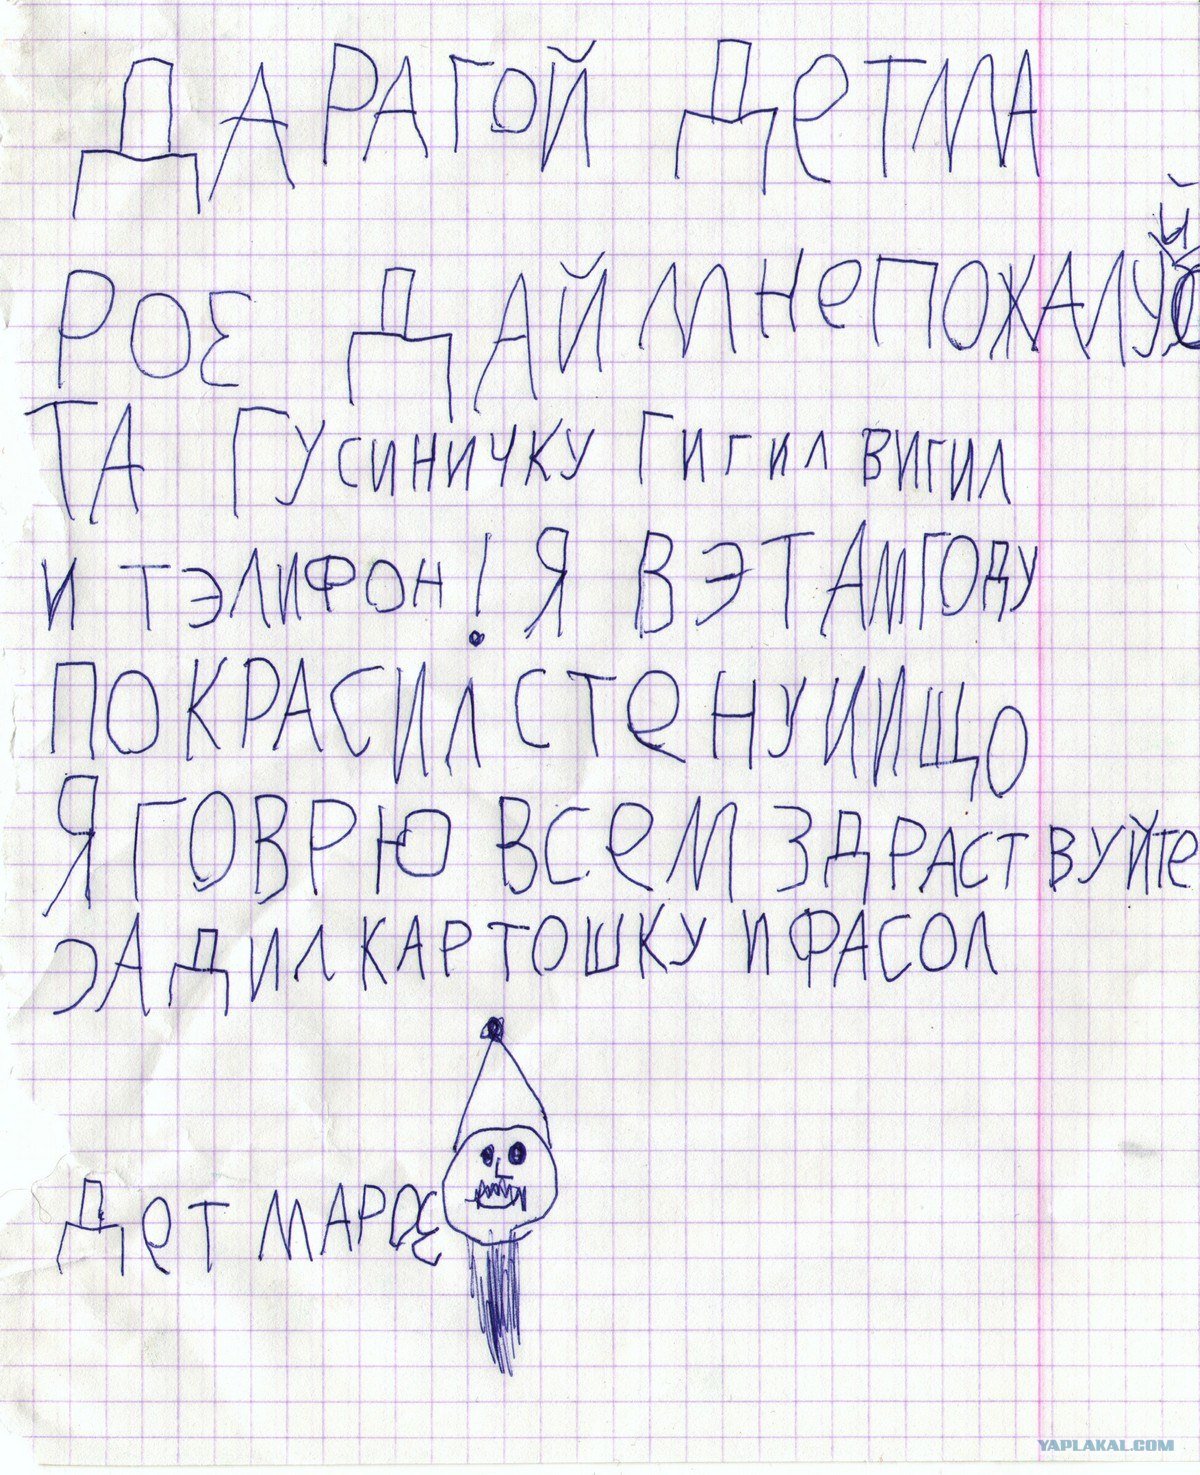 ДАРАГОЙ ДЕТМА
РОЗ ДАЙ МНЕ ПОХАЛУЙ
ТА ГУСИНИЧКУ ГИГИЛ ВИГИЛ
И ТЭЛИФОН! Я В ЭТАМ ГОДУ
ПОКРАСИЛ СТЕНУ И ИЩО
Я ГОВРЮ ВСЕМ ЗДРАСТВУЙТЕ
ЭАДИЛ КАРТОШКУ И ФАСОЛ
ДЕТ МАРОЗ
YAPLAKAL.COM